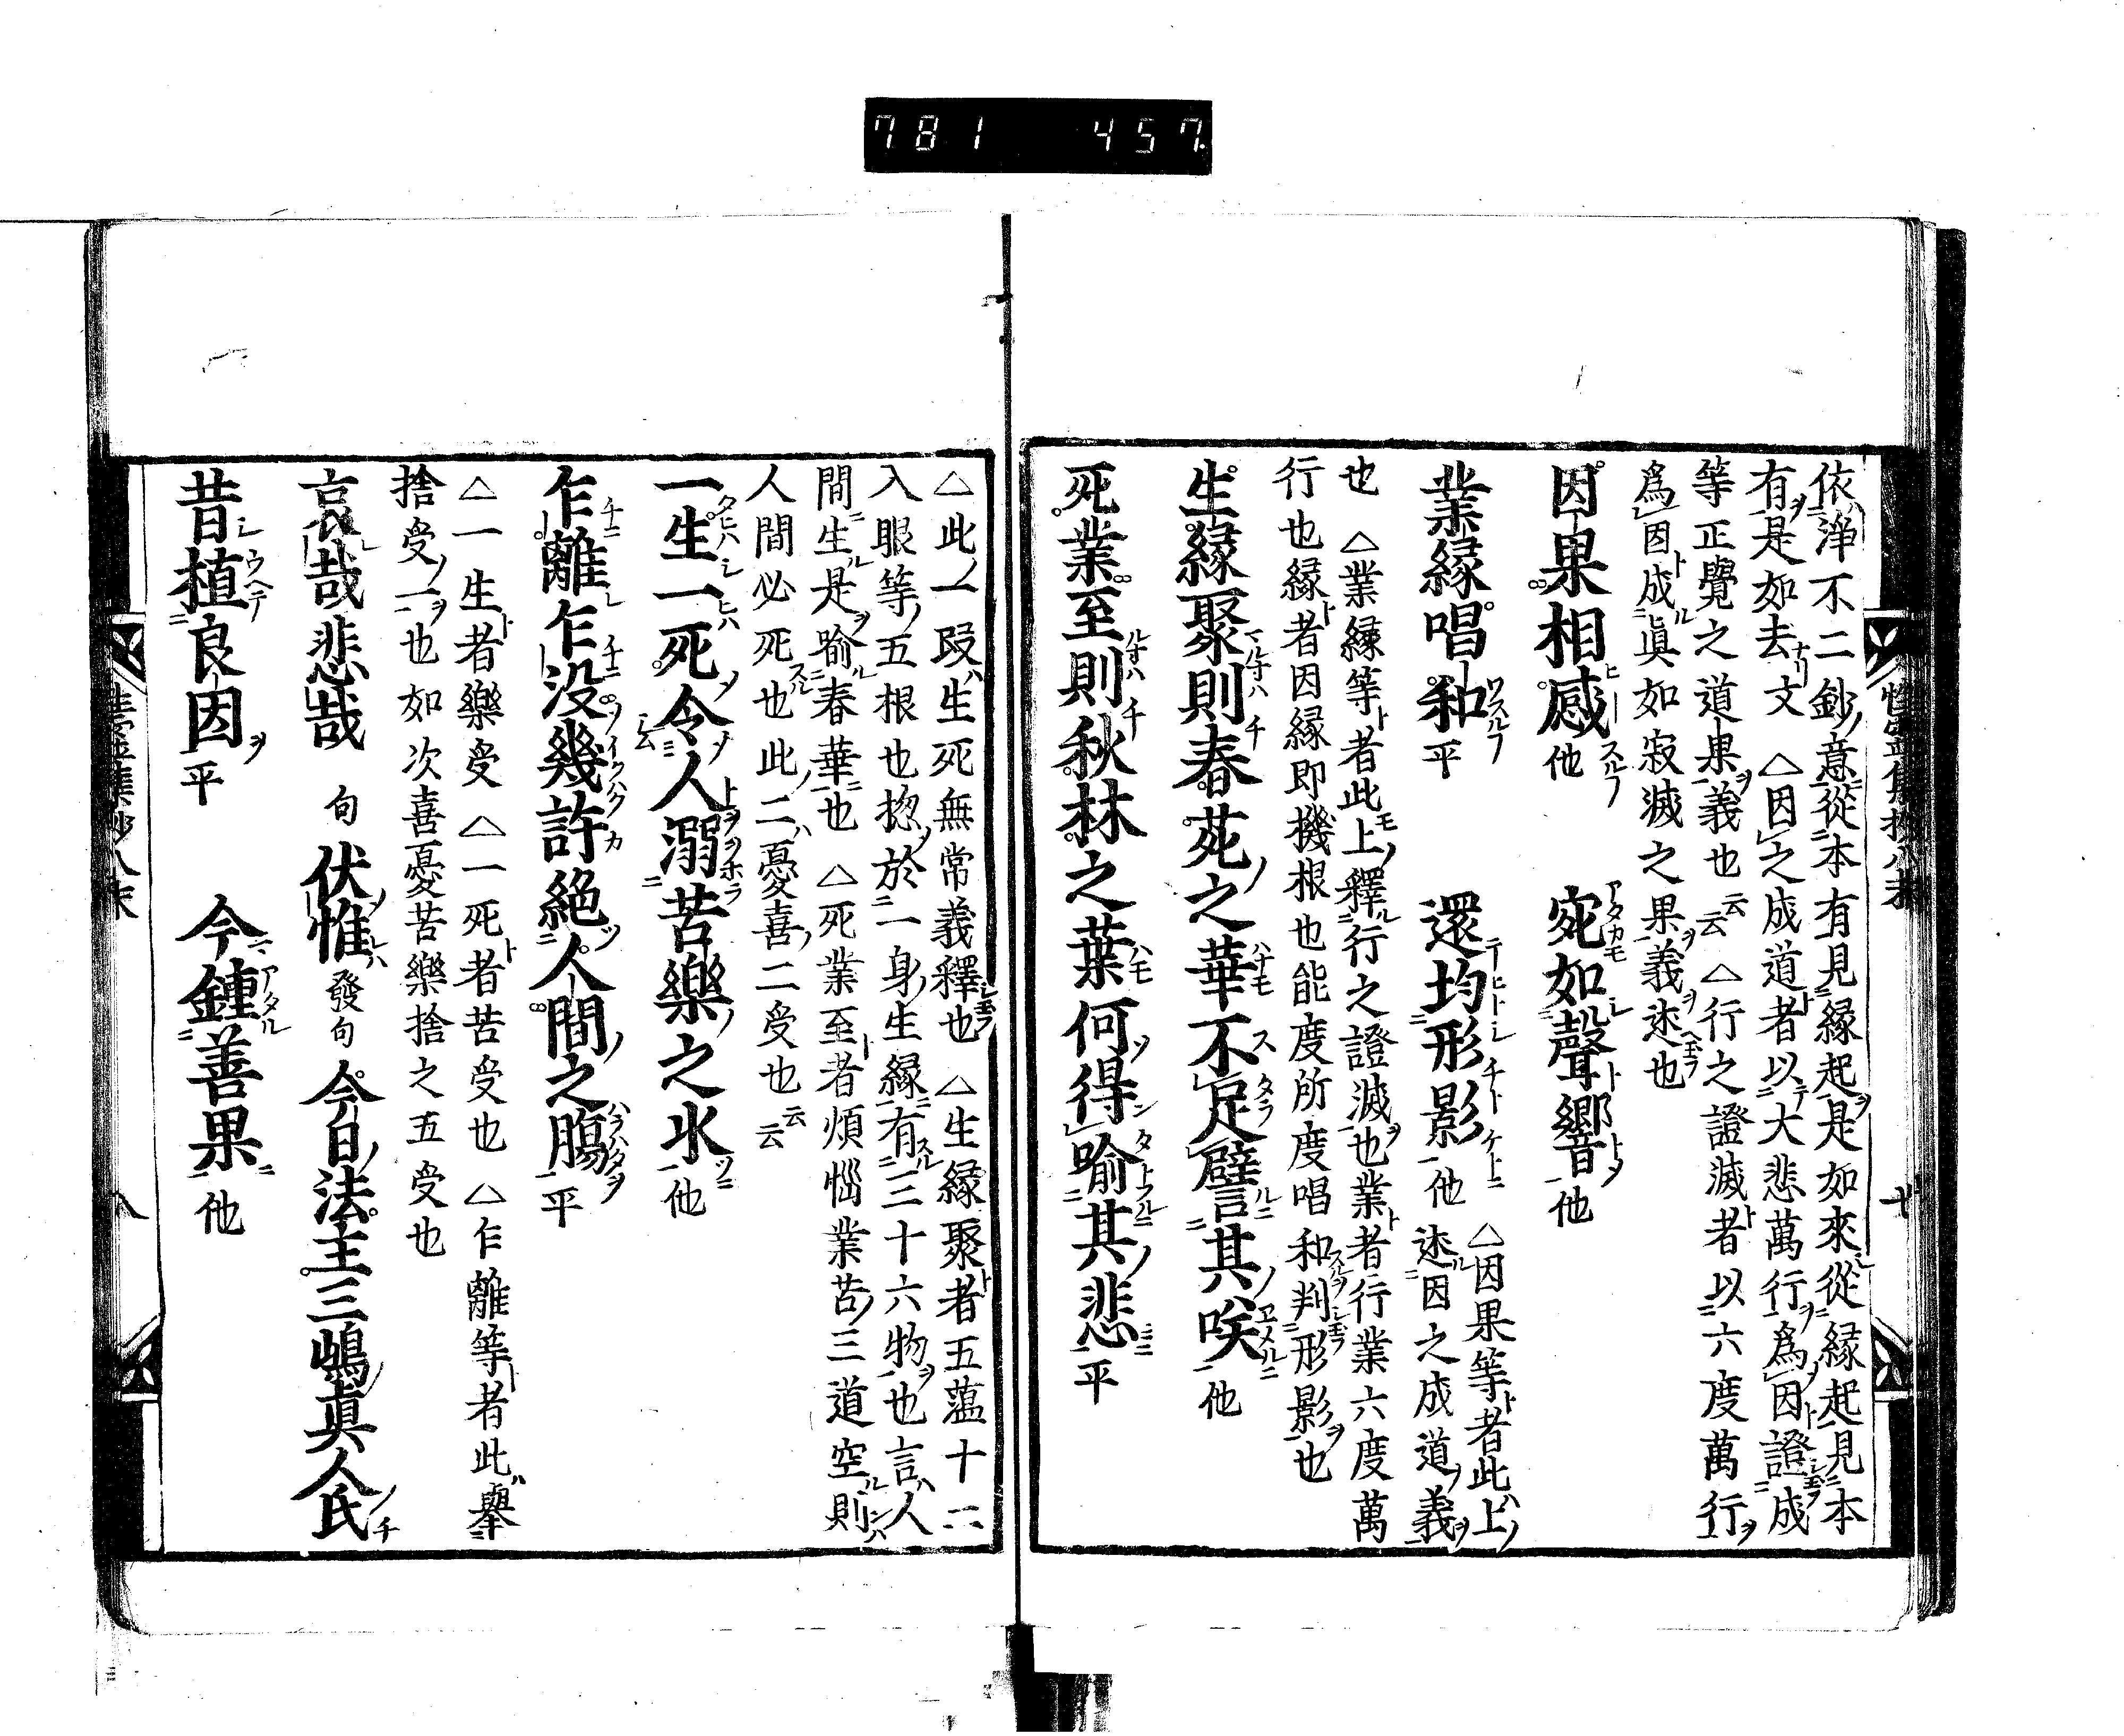 781 457
依浄不二鈔意從本有見縁起是如來從縁起見本
有是如去文 △因之成道者以大悲萬行爲因證成
等正覺之道果義也云云 △行之證滅者以六度萬行
爲因成眞如寂滅之果義迷也
因果相感他 宛如聲響他
業縁唱和平 還均形影他 △因果等者此上迷因之成道義
也 △業縁等者此上釋行之證滅也業者行業六度萬
行也縁者因縁即機根也能度所度唱和判形影也
生縁聚則春苑之華不足譬其咲他
死業至則秋林之葉何得喩其悲平
△此一段生死無常義釋也 △生縁聚者五蘊十二
入眼等五根也惣於一身生縁有三十六物也言人
間生是喩春華也 △死業至者煩惱業苦三道空則
人間必死也此二憂喜二受也云云
一生一死令人溺苦樂之水他
乍離乍没幾許絶人間之膓平
△一生者樂受 △一死者苦受也 △乍離等者此擧
捨受二也如次喜憂苦樂捨之五受也
哀哉悲哉 句 伏惟 發句 今日法主三嶋眞人氏
昔植良因平 今鍾善果他